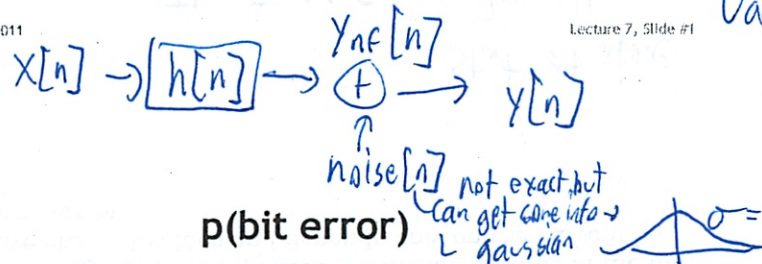 011
Lecture 7, Slide #1
Va
Ynf[n]
X[n] → h[n] → + → y[n]
noise[n] not exact, but
can get some info →
gaussian
σ =
p(bit error)